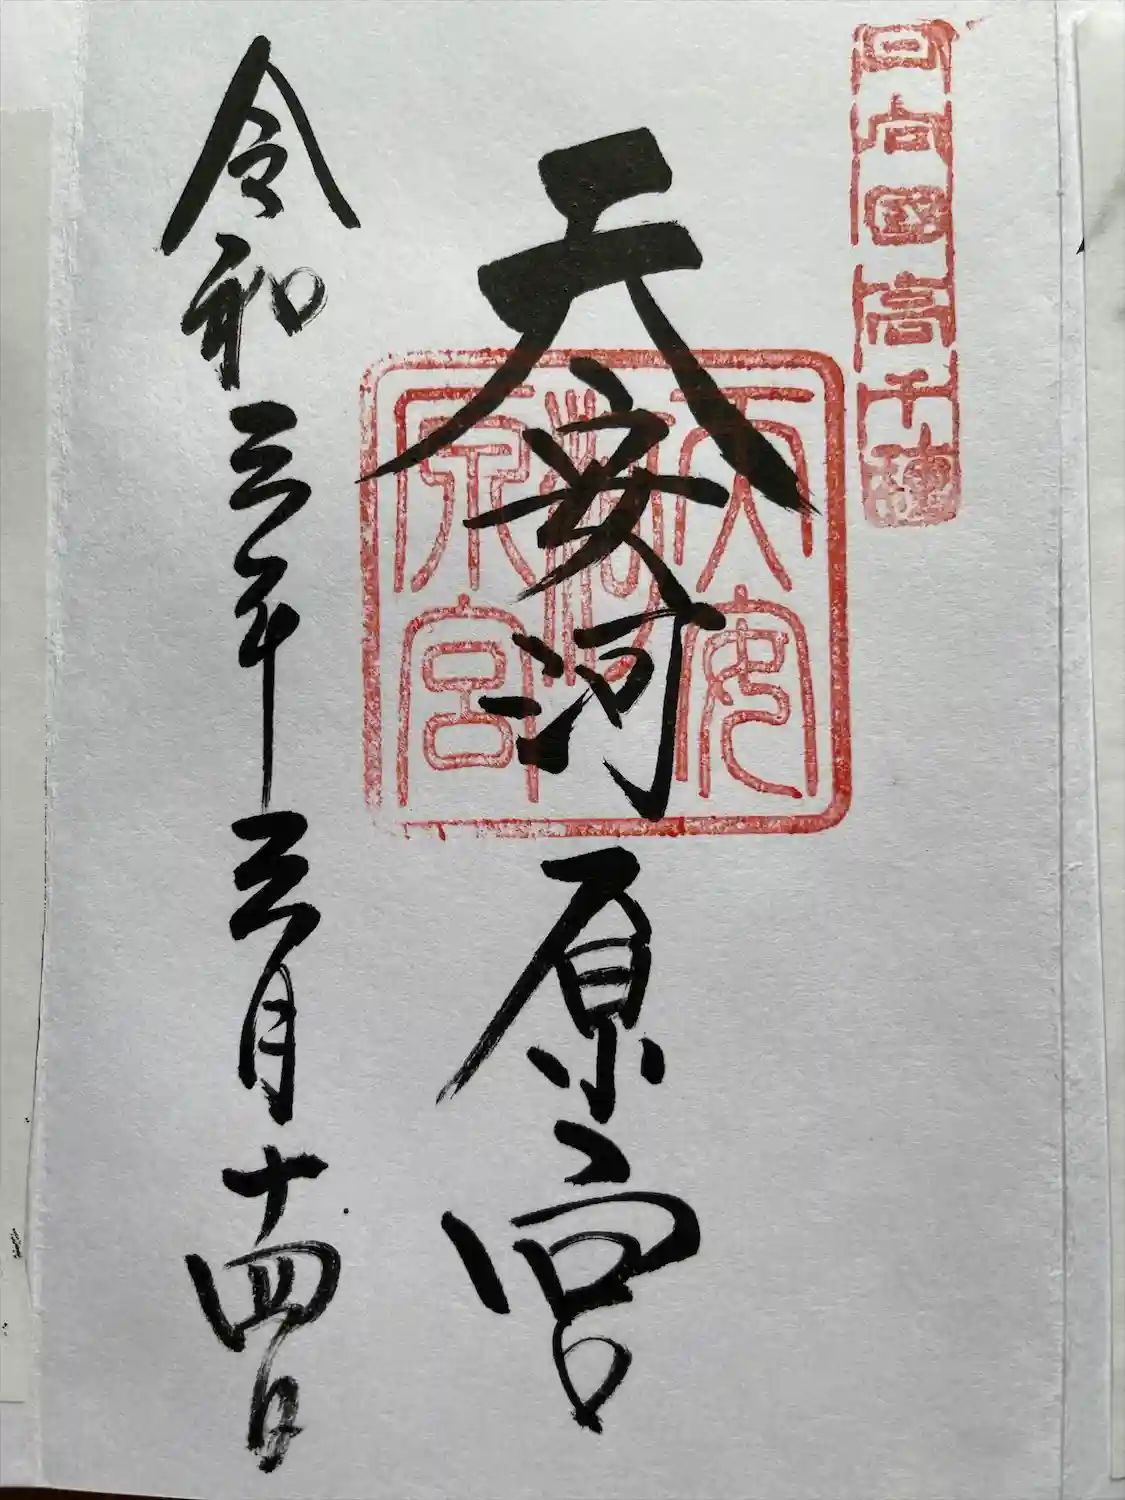 日向國高千穂
天安河原宮
天安河原宮
令和三年三月十四日